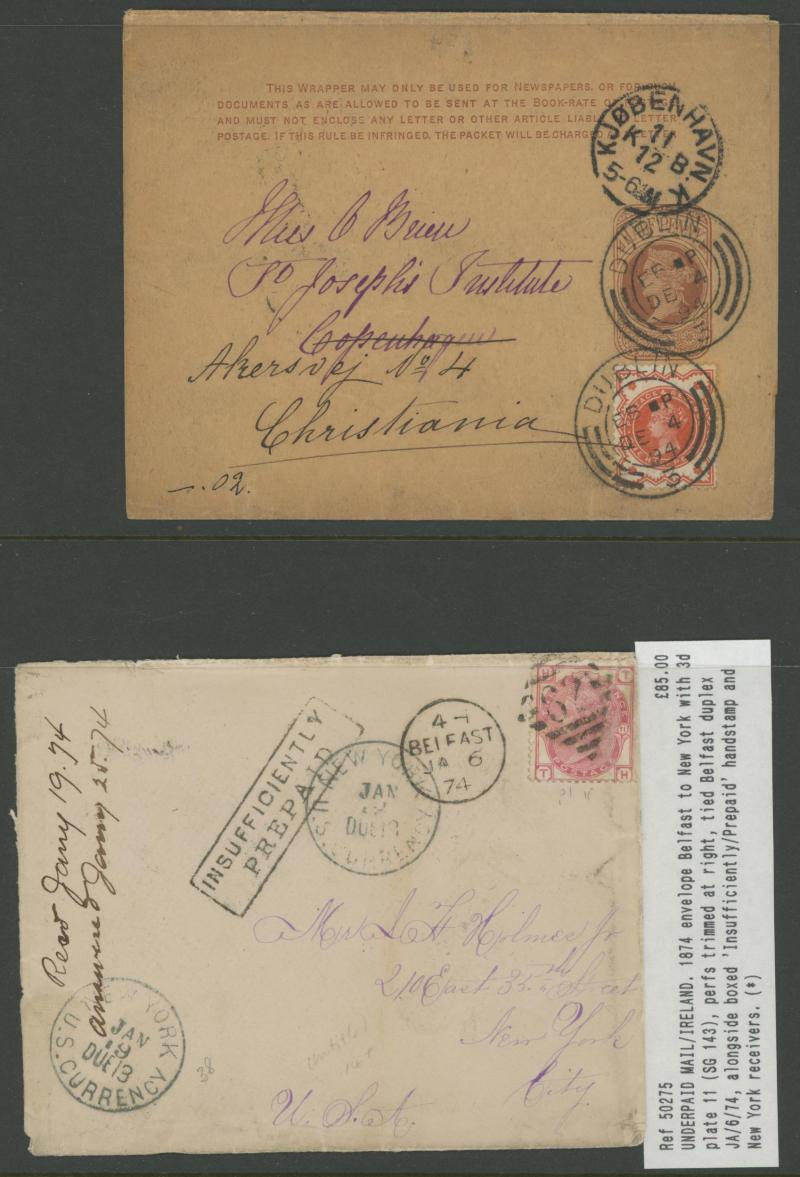 THIS WRAPPER MAY ONLY BE USED FOR NEWSPAPERS, OR FOR SUCH
DOCUMENTS AS ARE ALLOWED TO BE SENT AT THE BOOK-RATE OF
AND MUST NOT ENCLOSE ANY LETTER OR OTHER ARTICLE LIABLE LETTER
POSTAGE. IF THIS RULE BE INFRINGED, THE PACKET WILL BE CHARGED
KJØBENHAVN. K
11
K. 12 B.
5-6
Miss O'Brien
St Joseph's Institute
Copenhagen
Akersvej No 4
Christiania
02.
DUBLIN
DE 4
94
DUBLIN
DE 4
94
INSUFFICIENTLY
PREPAID
NEW YORK
JAN
DUE 13
U.S. CURRENCY
BELFAST
JA 6
74
62
H T
T H
POSTAGE
Recd Jany 19. 74
Answered Jany 25. 74
NEW YORK
JAN
19
DUE 13
U.S. CURRENCY
38
Holmes Jr
210 East 35th Street
New York
City.
U. S. A.
Ref 50275 £85.00
UNDERPAID MAIL/IRELAND. 1874 envelope Belfast to New York with 3d
plate 11 (SG 143), perfs trimmed at right, tied Belfast duplex
JA/6/74, alongside boxed 'Insufficiently/Prepaid' handstamp and
New York receivers. (*)